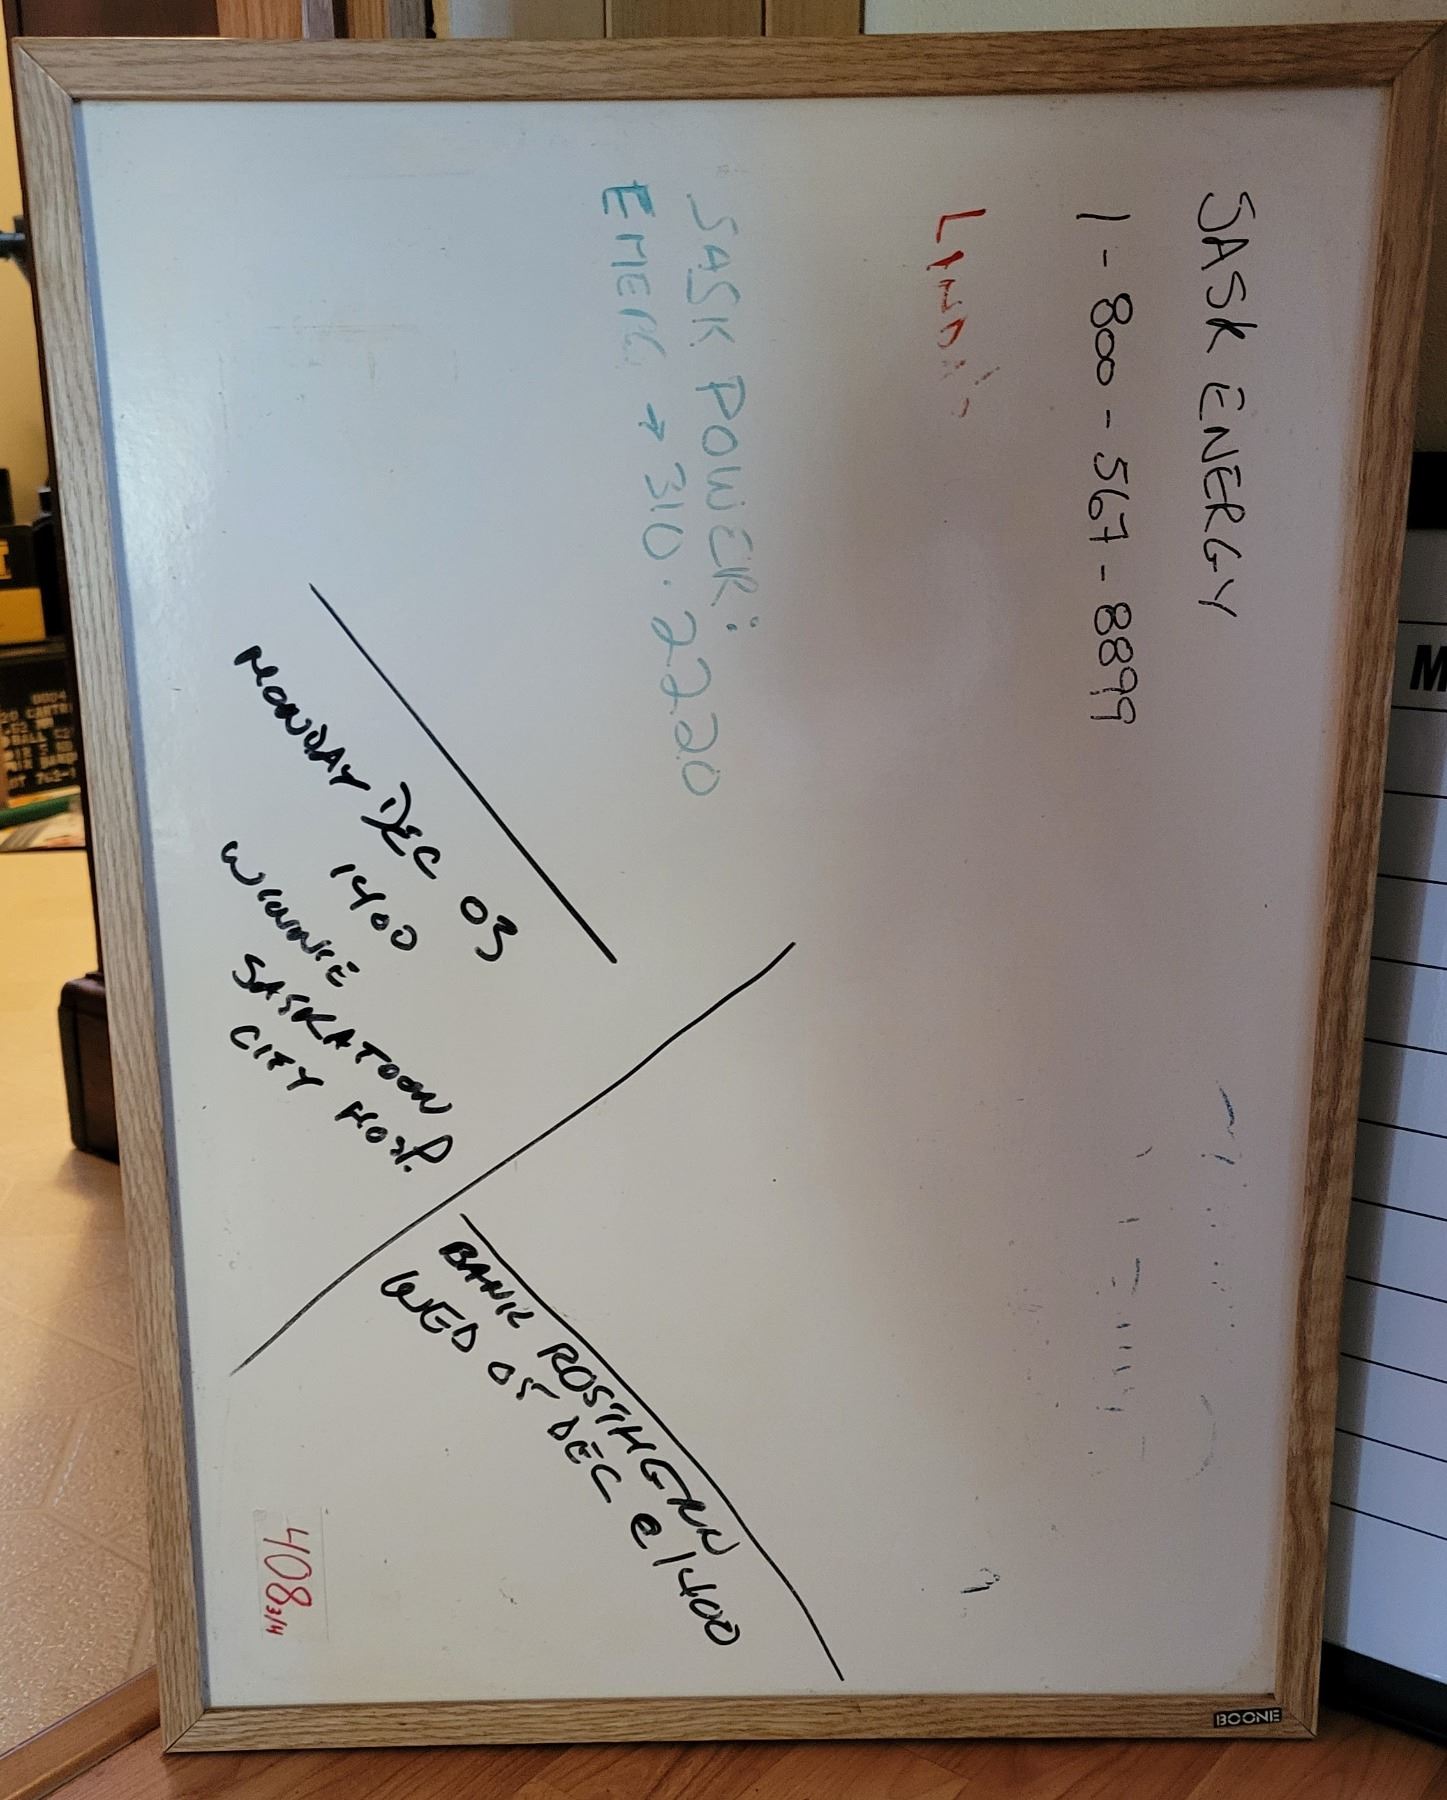 SASK ENERGY
1-800-567-8899
SASK POWER:
EMERG → 310.2220
MONDAY DEC 03
1400
WINNIE
SASKATOON
CITY HOSP.
BANK ROSTHERN
WED 05 DEC @ 1400
408 3/4
BOONE
M